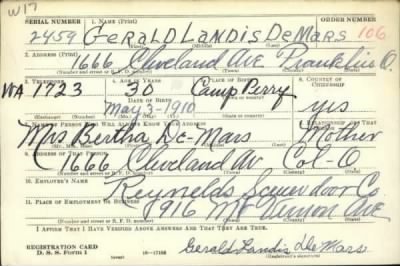 W17
SERIAL NUMBER 1. NAME (Print) ORDER NUMBER
2459 GERALD LANDIS DeMARS 106
(First) (Middle) (Last)
2. ADDRESS (Print)
1666 Cleveland Ave Franklin O.
(Number and street or R. F. D. number) (Town) (County) (State)
3. TELEPHONE 4. AGE IN YEARS 5. PLACE OF BIRTH 6. COUNTRY OF CITIZENSHIP
WA 1723 30 Camp Perry
DATE OF BIRTH
May-3-1910 yes
7. NAME OF PERSON WHO WILL ALWAYS KNOW YOUR ADDRESS 8. RELATIONSHIP OF THAT PERSON
Mrs Bertha De-Mars Mother
9. ADDRESS OF THAT PERSON
1666 Cleveland Av Col-O
(Number and street or R. F. D. number) (Town) (County) (State)
10. EMPLOYER'S NAME
Reynolds Screen door Co.
11. PLACE OF EMPLOYMENT OR BUSINESS
916 Mt Vernon Ave
(Number and street or R. F. D. number) (Town) (County) (State)
I AFFIRM THAT I HAVE VERIFIED ABOVE ANSWERS AND THAT THEY ARE TRUE.
REGISTRATION CARD
D. S. S. Form 1 (over) Gerald Landis De Mars
(Registrant's signature)